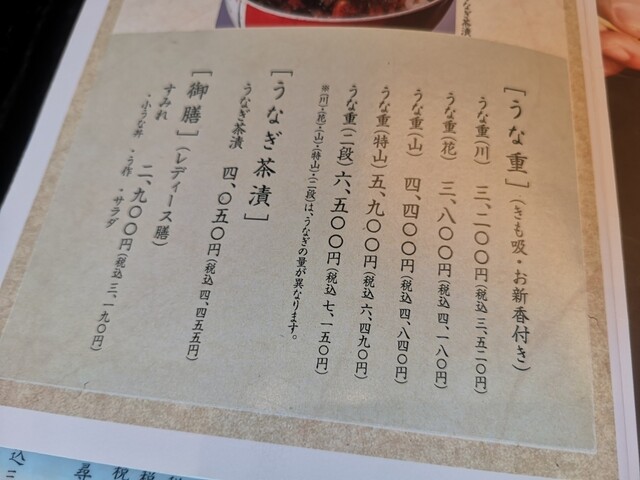 うなぎ茶漬
[うな重](きも吸・お新香付き)
うな重(川) 三、二〇〇円(税込 三、五二〇円)
うな重(花) 三、八〇〇円(税込 四、一八〇円)
うな重(山) 四、四〇〇円(税込 四、八四〇円)
うな重(特山) 五、九〇〇円(税込 六、四九〇円)
うな重(二段) 六、五〇〇円(税込 七、一五〇円)
※(川)・(花)・(山)・(特山)・(二段)は、うなぎの量が異なります。
[うなぎ茶漬]
うなぎ茶漬 四、〇五〇円(税込 四、四五五円)
[御膳](レディース膳)
すみれ 二、九〇〇円(税込 三、一九〇円)
・小うな丼 ・う作 ・サラダ